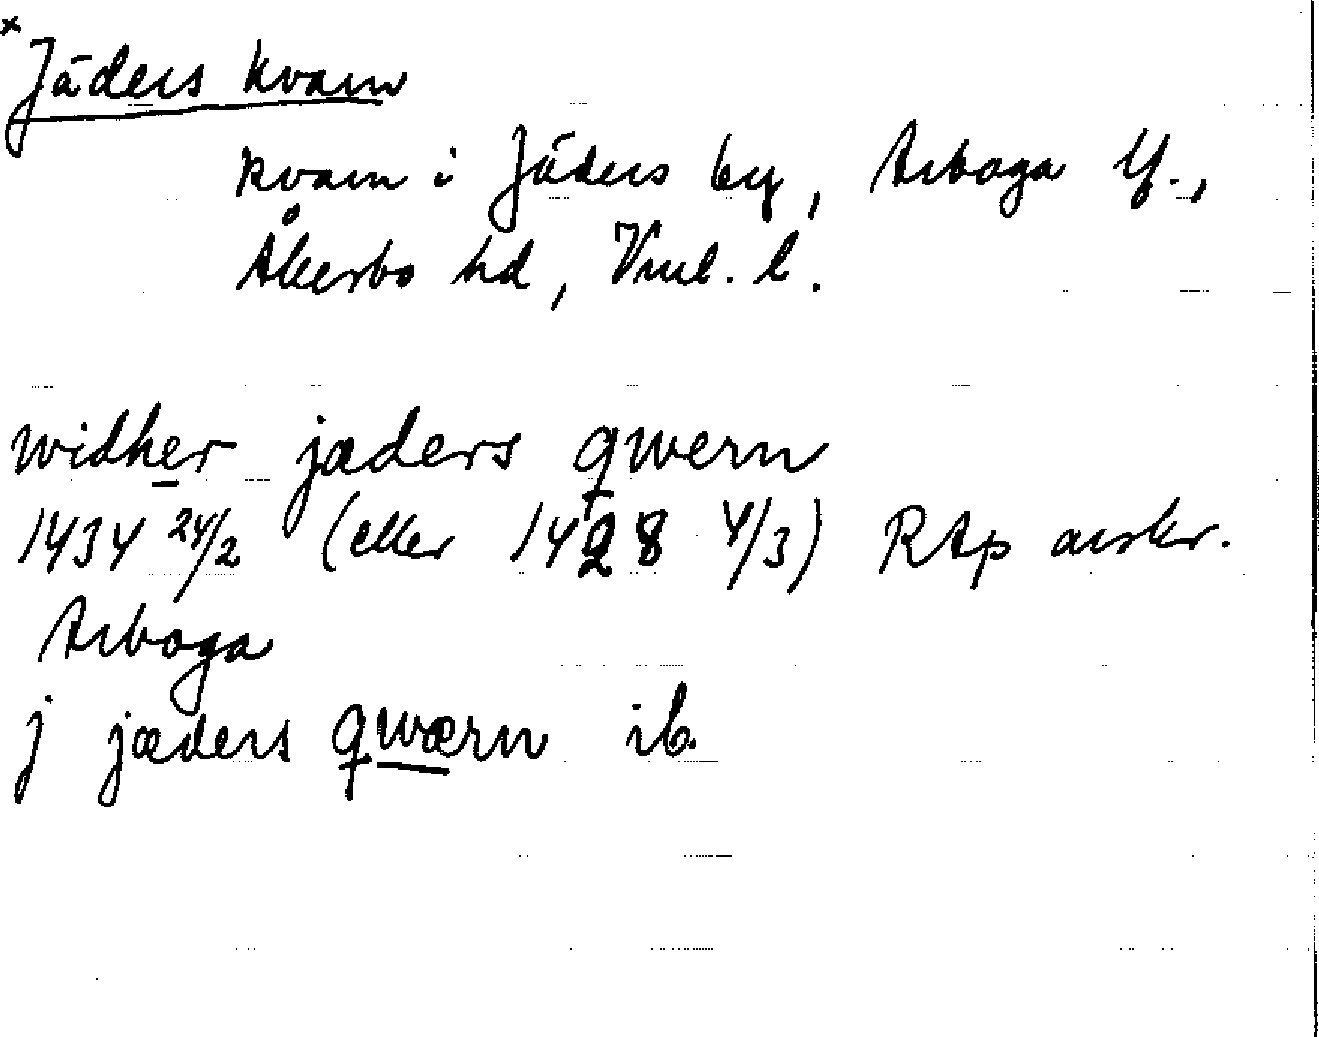 × Jäders kvarn
kvarn i Jäders by, Arboga lf.,
Åkerbo hd, Vml. l.
widher jæders qwern
1434 24/2 (eller 1428 4/3) RAp avskr.
Arboga
j jæders qwærn ib.